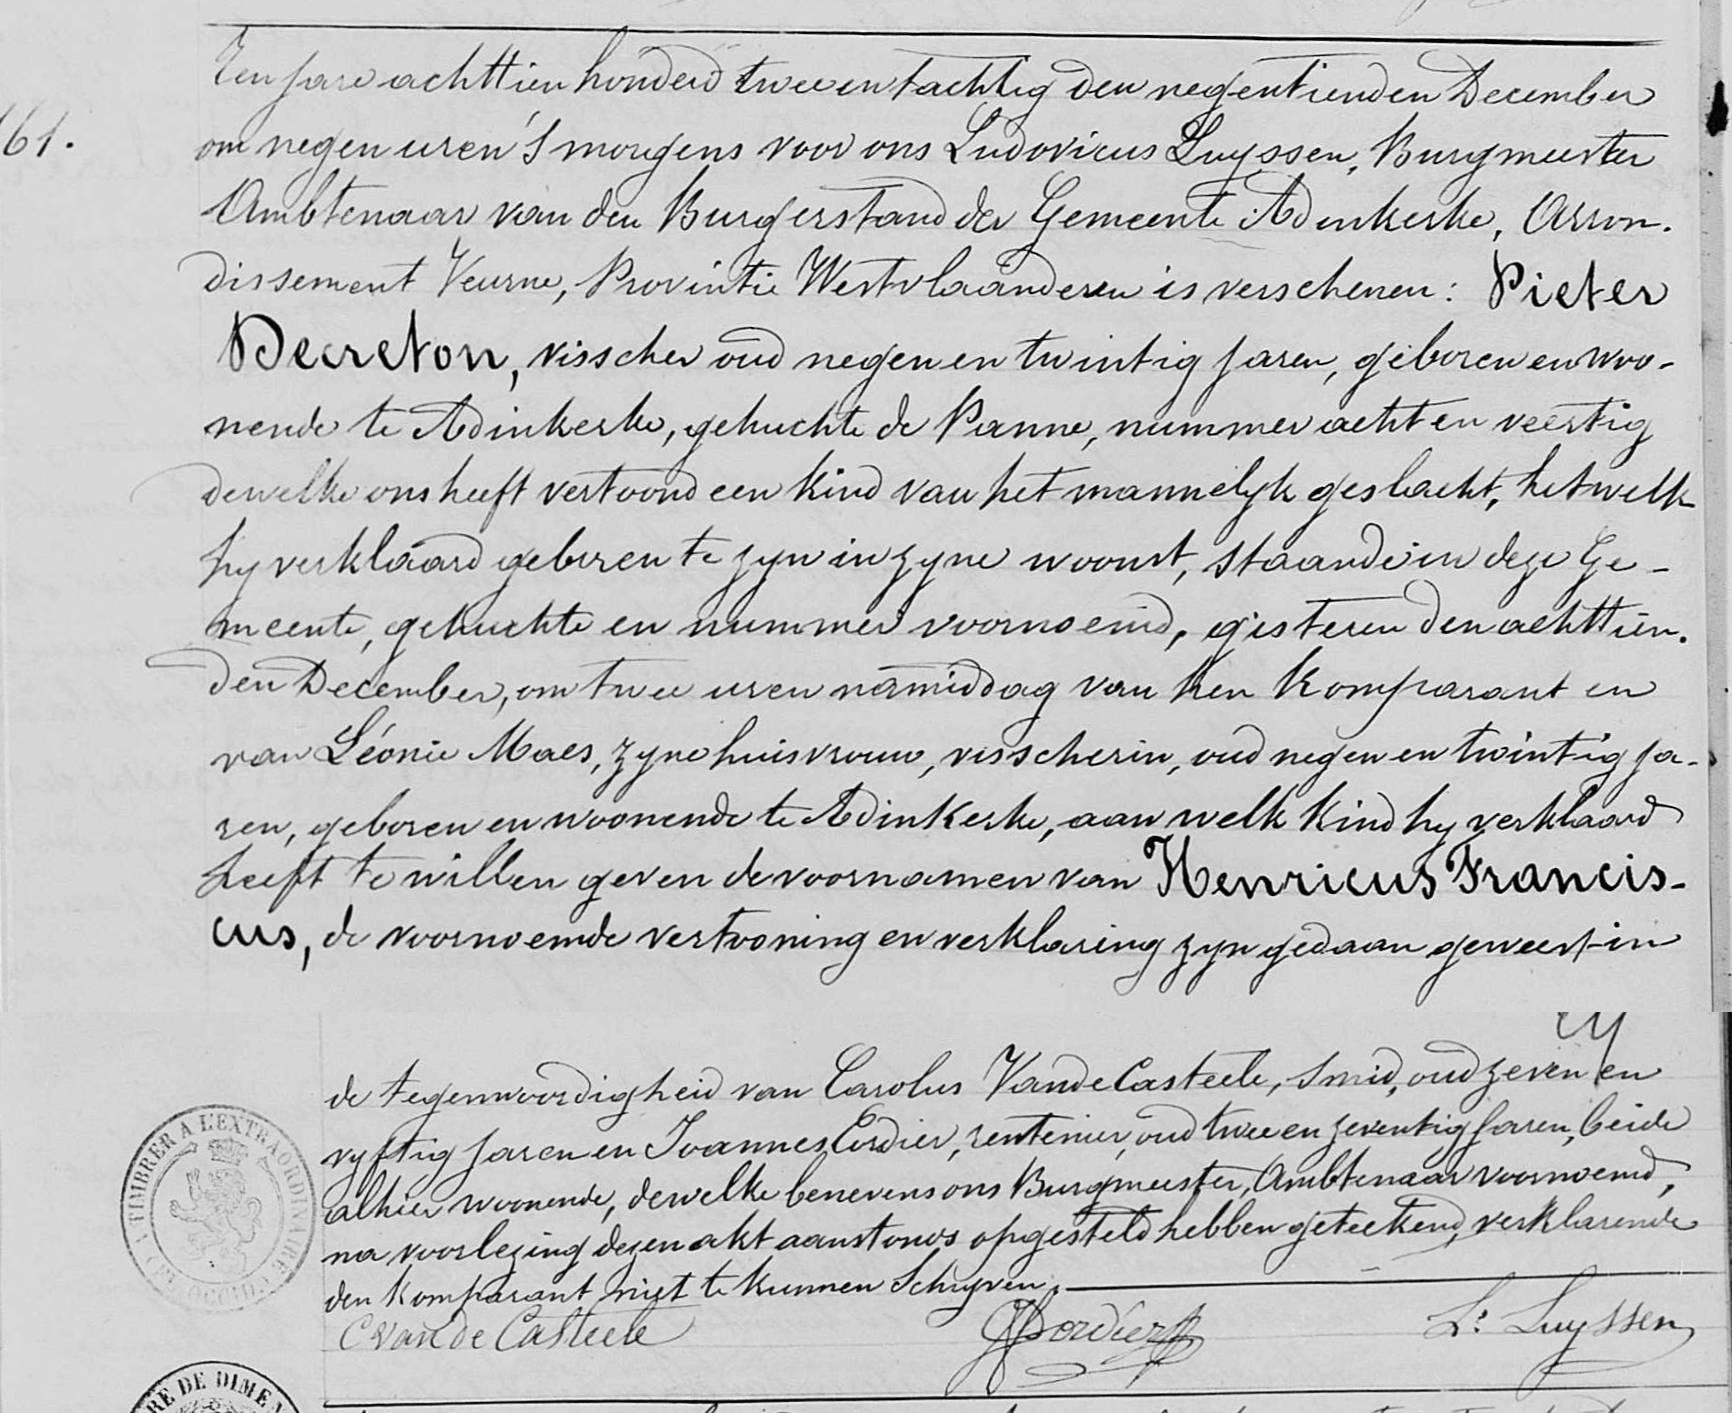 161.
Ten jare achttien honderd twee en tachtig den negentienden December
om negen uren 's morgens voor ons Ludovicus Luyssen, Burgmeester
Ambtenaar van den Burgerstand der Gemeente Adinkerke, Arron-
dissement Veurne, Provintie Westvlaanderen is verschenen: Pieter
Decreton, visscher oud negen en twintig jaren, geboren en woo-
nende te Adinkerke, gehuchte de Panne, nummer acht en veertig
dewelke ons heeft vertoond een kind van het mannelyk geslacht, het welk
hy verklaard geboren te zyn in zyne woonst, staande in deze Ge-
meente, gehuchte en nummer voornoemd, gisteren den achttien-
den December, om twee uren namiddag van hen Komparant en
van Léonie Maes, zyne huisvrouw, visscherin, oud negen en twintig ja-
ren, geboren en woonende te Adinkerke, aan welk kind hy verklaard
heeft te willen geven de voornamen van Henricus Francis-
cus, de voornoemde vertooning en verklaring zyn gedaan geweest in
de tegenwoordigheid van Carolus VandeCasteele, smid, oud zeven en
vyftig jaren en Joannes Cordier, rentenier, oud twee en zeventig jaren, beide
alhier woonende, dewelke benevens ons Burgmeester, Ambtenaar voornoemd,
na voorlezing dezen akt aanstonds opgesteld hebben geteekend, verklarende
den Komparant niet te kunnen Schryven.
C Van de Casteele
J Cordier
Ls. Luyssen
TIMBRER A L'EXTRAORDINAIRE
OCCID.
RE DE DIME